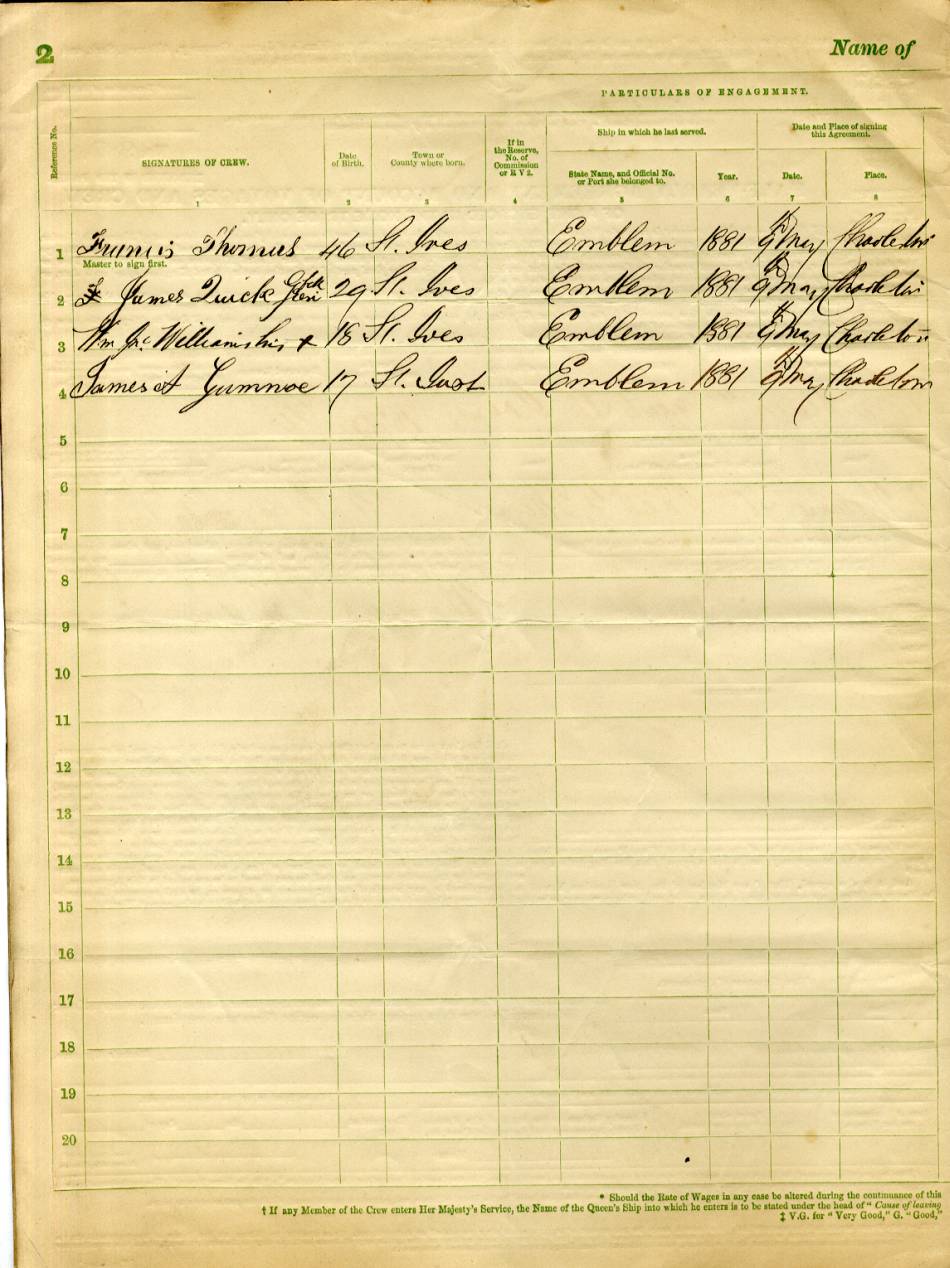 2 Name of
PARTICULARS OF ENGAGEMENT.
Reference No.
SIGNATURES OF CREW.
Date
of Birth.
Town or
County where born.
If in
the Reserve,
No. of
Commission
or R V 2.
Ship in which he last served.
State Name, and Official No.
or Port she belonged to.
Year.
Date and Place of signing
this Agreement.
Date.
Place.
1 2 3 4 5 6 7 8
1 Francis Thomas 46 St. Ives Emblem 1881 9 May Charleton
Master to sign first.
2 James Quick 29 St. Ives Emblem 1881 9 May Charleton
3 Wm Williams his x 18 St. Ives Emblem 1881 9 May Charleton
4 James 17 St. Just Emblem 1881 9 May Charleton
5
6
7
8
9
10
11
12
13
14
15
16
17
18
19
20
* Should the Rate of Wages in any case be altered during the continuance of this
† If any Member of the Crew enters Her Majesty's Service, the Name of the Queen's Ship into which he enters is to be stated under the head of " Cause of leaving
‡ V.G. for " Very Good," G. " Good,"